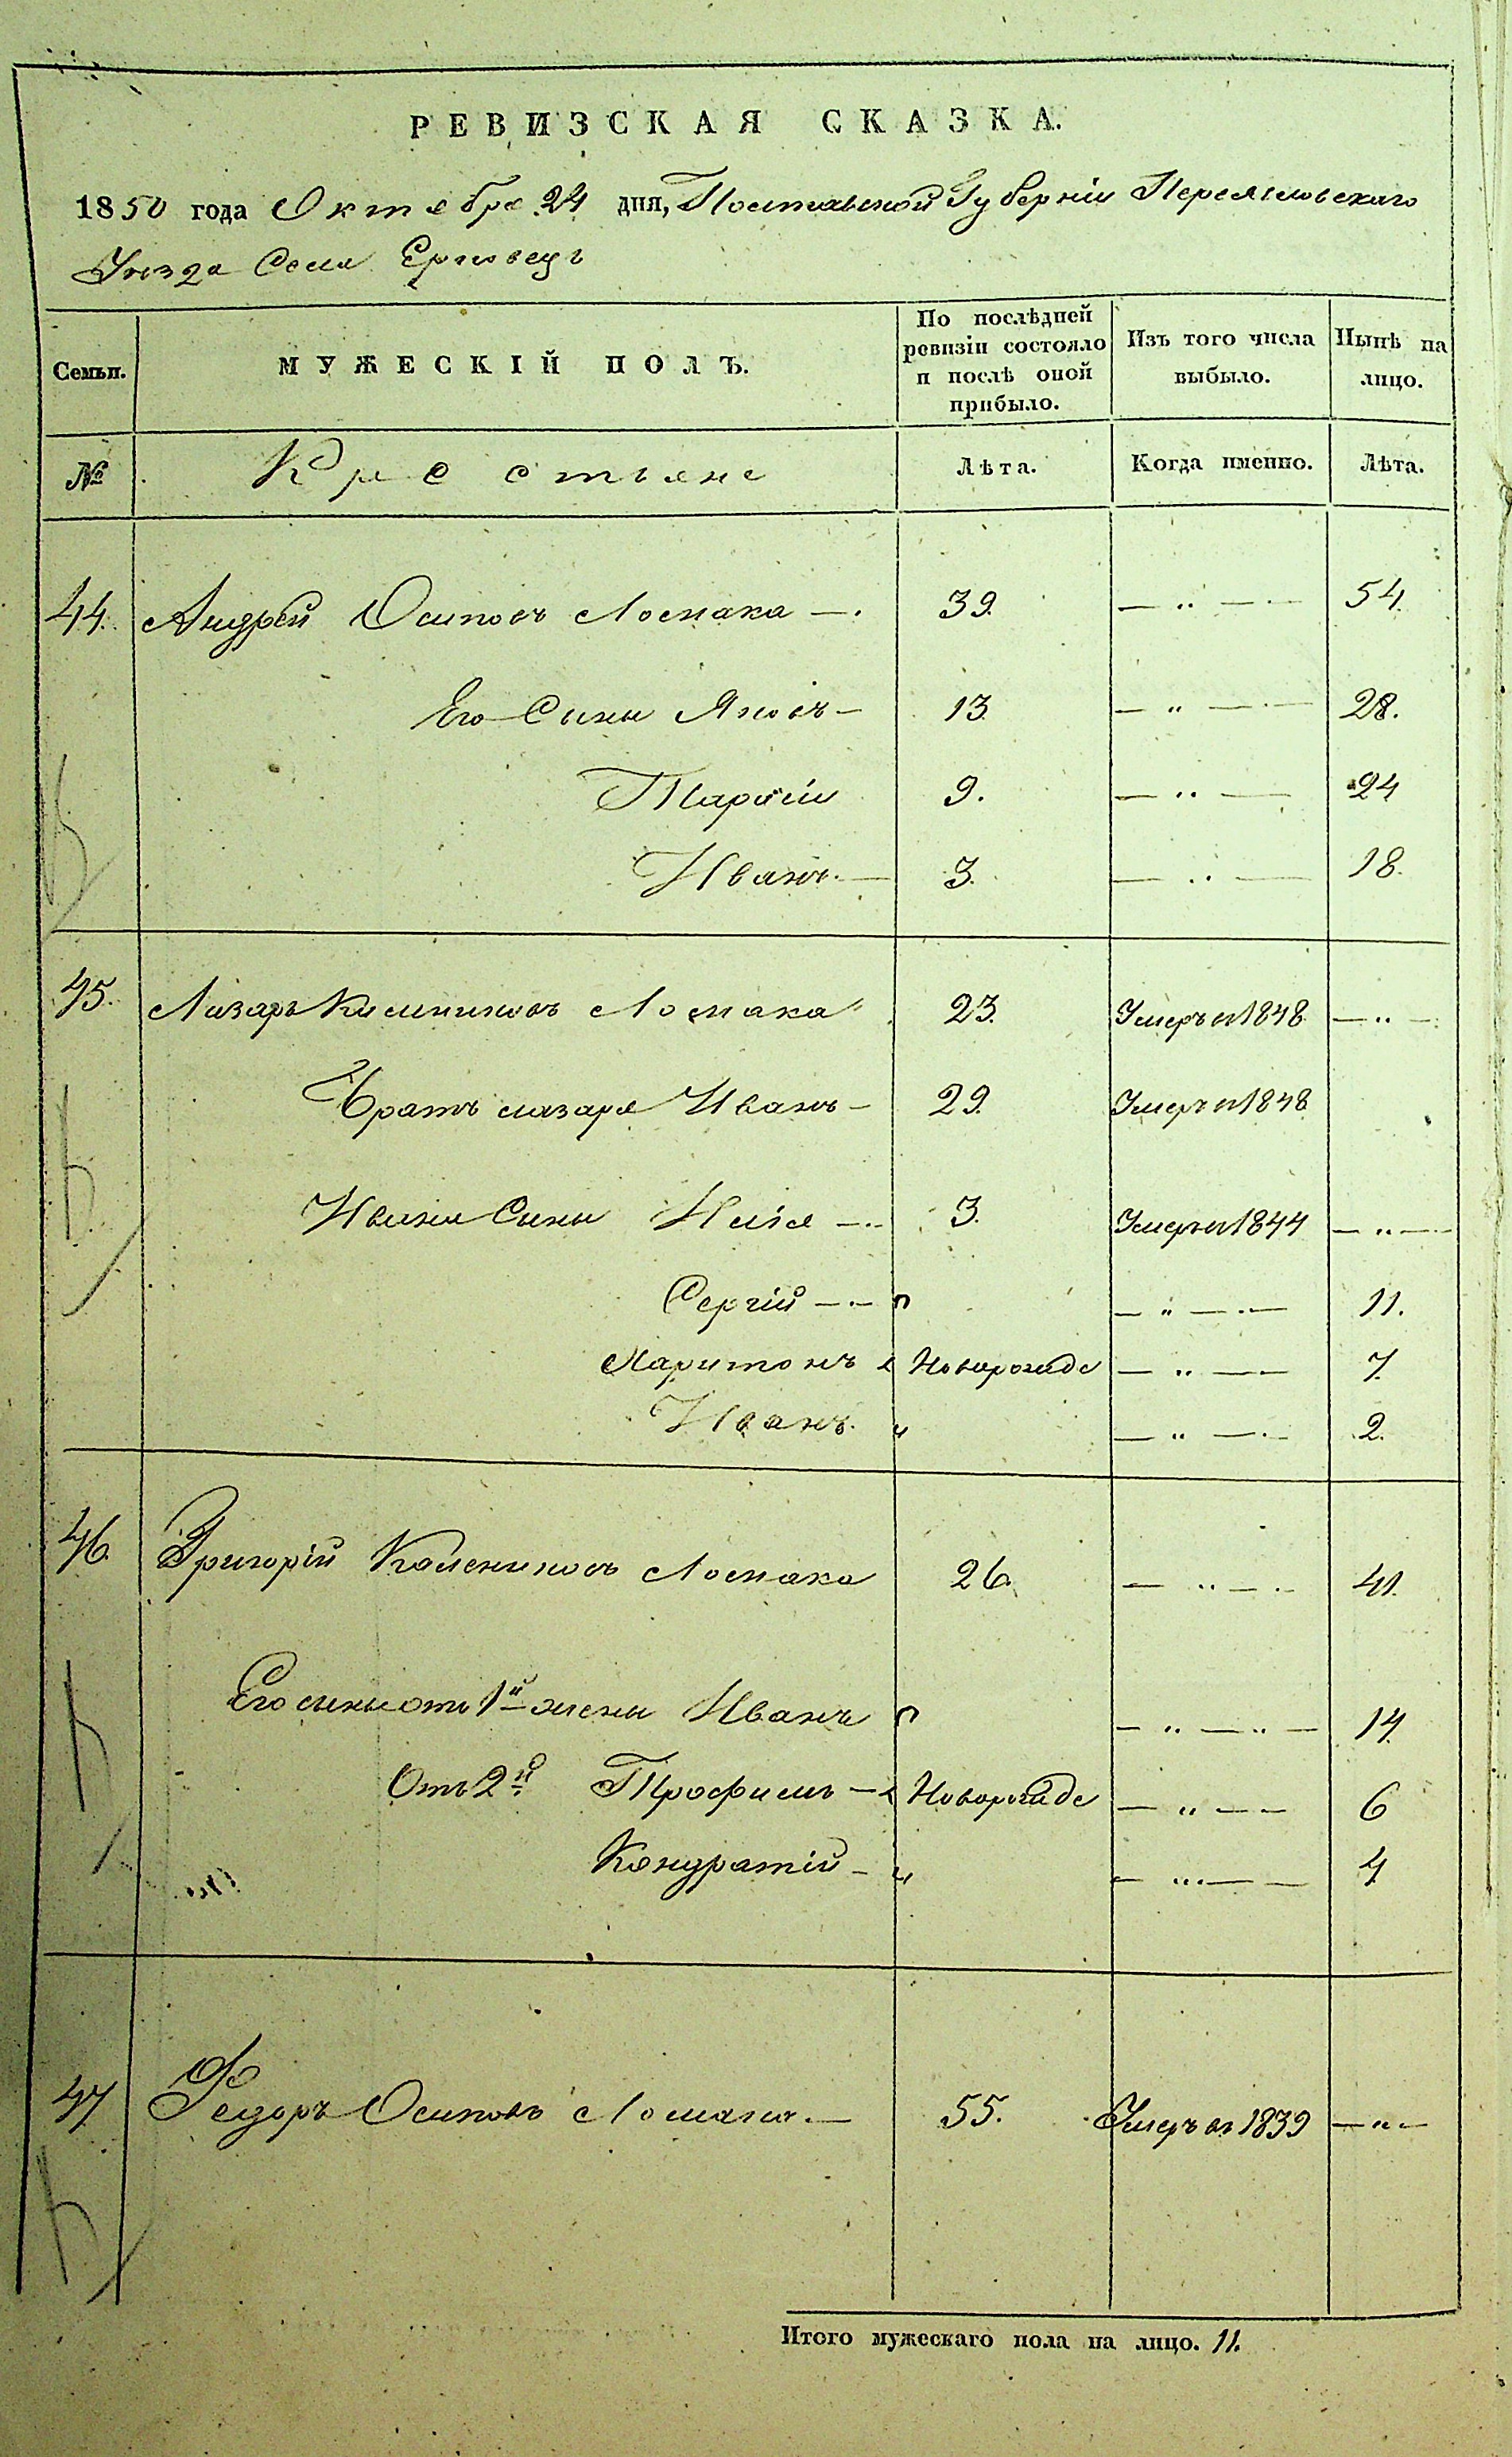 РЕВИЗСКАЯ СКАЗКА.
1850 года Октября 24 дня, Полтавской Губерніи Переяславскаго
Уѣзда Села Ерковецъ
Семьи.
МУЖЕСКІЙ ПОЛЪ.
По послѣдней ревизіи состояло и послѣ оной прибыло.
Изъ того числа выбыло.
Нынѣ на лицо.
№
Крестьяне
Лѣта.
Когда именно.
Лѣта.
44. Андрей Осиповъ Ломака —. 39. — " — 54.
Его Сыны Яковъ — 13 — " — 28.
Тарасій 9. — " — 24
Иванъ. — 3. — " — 18.
45. Лазарь Калениковъ Ломака 23. Умеръ въ 1848 — " —
Братъ Лазаря Иванъ — 29. Умеръ въ 1848
Ивана Сыны Илія — 3. Умеръ въ 1844 — " —
Сергій — — " — 11.
Харитонъ Новорожде — " — 7.
Иванъ. — " — 2.
46. Григорій Калениковъ Ломака 26. — " — 41.
Его сыны отъ 1й жены Иванъ — " — " — 14
Отъ 2й Трофимъ — Новорожде — " — 6
Кондратій — " — " — 4
47. Федоръ Осиповъ Ломака. — 55. Умеръ въ 1839 — " —
Итого мужескаго пола на лицо. 11.